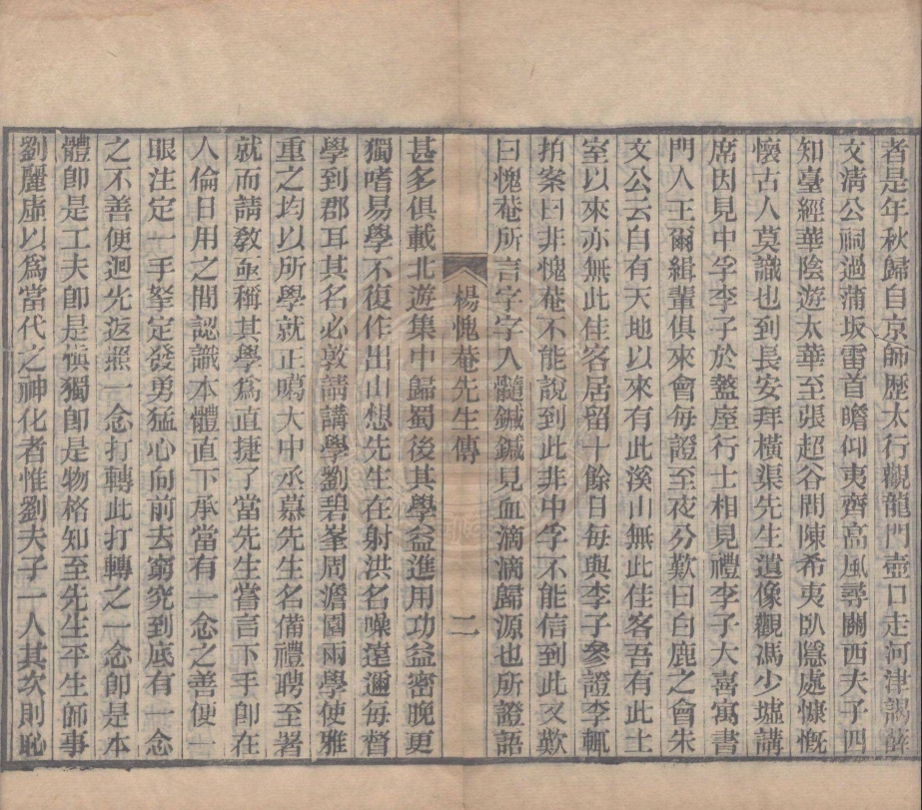 者是年秋歸自京師歷太行觀龍門壺口走河津謁薛
文淸公祠過蒲坂雷首瞻仰夷齊高風尋關西夫子四
知臺經華陰遊太華至張超谷問陳希夷臥隱處慷慨
懷古人莫識也到長安拜橫渠先生遺像觀馮少墟講
席因見中孚李子於盩厔行士相見禮李子大喜寓書
門人王爾緝輩俱來會每證至夜分歎曰白鹿之會朱
文公云自有天地以來有此溪山無此佳客吾有此土
室以來亦無此佳客居留十餘日每與李子參證李輒
拍案曰非愧菴不能說到此非中孚不能信到此又歎
曰愧菴所言字字入髓鍼鍼見血滴滴歸源也所證語
楊愧菴先生傳 二
甚多俱載北遊集中歸蜀後其學益進用功益密晚更
獨嗜易學不復作出山想先生在射洪名噪遠邇每督
學到郡耳其名必敦請講學劉碧峯周澹園兩學使雅
重之均以所學就正噶大中丞慕先生名備禮聘至署
就而請敎亟稱其學爲直捷了當先生嘗言下手卽在
人倫日用之間認識本體直下承當有一念之善便一
眼注定一手拏定發勇猛心向前去窮究到底有一念
之不善便迴光返照一念打轉此打轉之一念卽是本
體卽是工夫卽是愼獨卽是物格知至先生平生師事
劉麗虛以爲當代之神化者惟劉夫子一人其次則恥